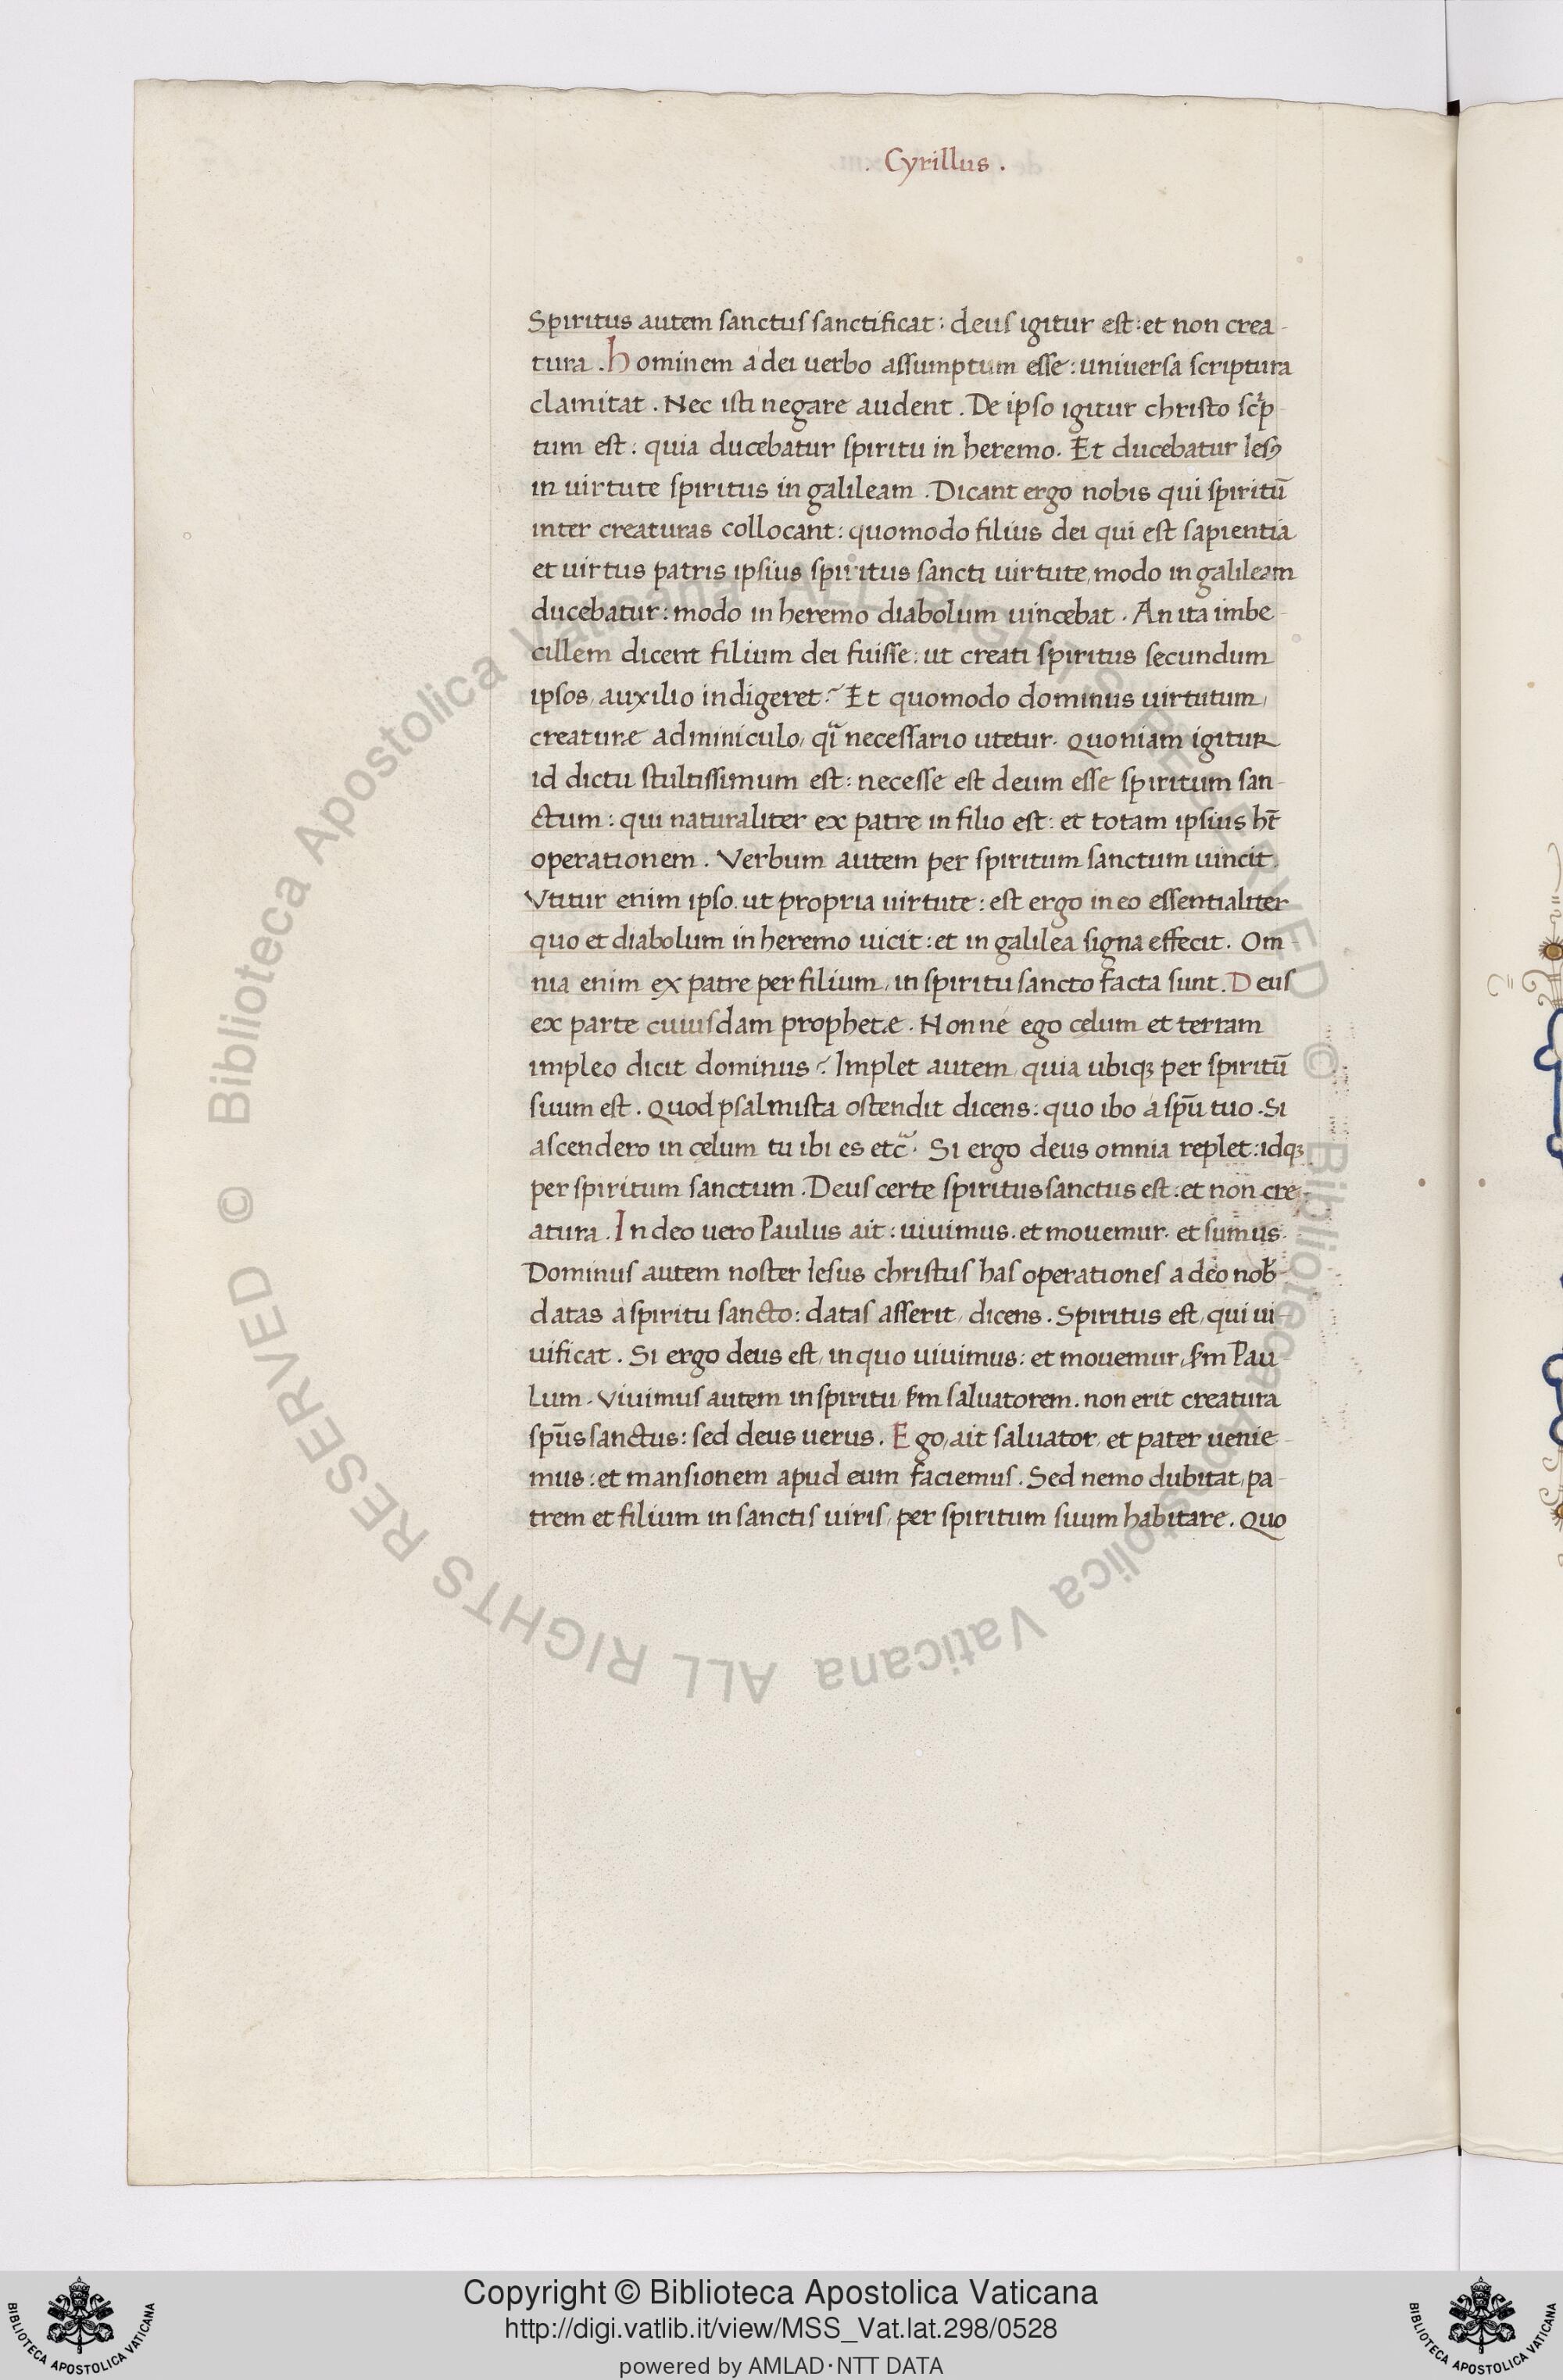 . Cyrillus .
Spiritus autem sanctus sanctificat : deus igitur est : et non crea-
tura . Hominem a dei uerbo assumptum esse : uniuersa scriptura
clamitat . Nec isti negare audent . De ipso igitur christo scͥp-
tum est : quia ducebatur spiritu in heremo . Et ducebatur Iesꝰ
in uirtute spiritus in galileam . Dicant ergo nobis qui spiritū
inter creaturas collocant : quomodo filius dei qui est sapientia
et uirtus patris ipsius spiritus sancti uirtute, modo in galileam
ducebatur : modo in heremo diabolum uincebat . An ita imbe-
cillem dicent filium dei fuisse : ut creati spiritus secundum
ipsos, auxilio indigeret ? Et quomodo dominus uirtutum,
creaturæ adminiculo, qͣi necessario utetur . Quoniam igitur
id dictu stultissimum est : necesse est deum esse spiritum san-
ctum : qui naturaliter ex patre in filio est : et totam ipsius ht̄
operationem . Verbum autem per spiritum sanctum uincit .
Vtitur enim ipso ut propria uirtute : est ergo in eo essentialiter
quo et diabolum in heremo uicit : et in galilea signa effecit . Om-
nia enim ex patre per filium, in spiritu sancto facta sunt . Deus
ex parte cuiusdam prophetæ . Nonne ego celum et terram
impleo dicit dominus ? Implet autem, quia ubiqꝫ per spiritū
suum est . Quod psalmista ostendit dicens : quo ibo a spū tuo . Si
ascendero in celum tu ibi es etcͣ . Si ergo deus omnia replet : idqꝫ
per spiritum sanctum . Deus certe spiritus sanctus est : et non cre-
atura . In deo uero Paulus ait : uiuimus . et mouemur . et sumus .
Dominus autem noster Iesus christus has operationes a deo nob̄
datas a spiritu sancto : datas asserit, dicens . Spiritus est, qui ui-
uificat . Si ergo deus est, in quo uiuimus : et mouemur, s̄m Pau-
lum . Viuimus autem in spiritu s̄m saluatorem . non erit creatura
sp̄us sanctus : sed deus uerus . Ego, ait saluator, et pater uenie-
mus : et mansionem apud eum faciemus . Sed nemo dubitat, pa-
trem et filium in sanctis uiris, per spiritum suum habitare . Quo
© Biblioteca Apostolica Vaticana ALL RIGHTS RESERVED © Biblioteca Apostolica Vaticana ALL RIGHTS RESERVED
Copyright © Biblioteca Apostolica Vaticana
http://digi.vatlib.it/view/MSS_Vat.lat.298/0528
powered by AMLAD·NTT DATA
BIBLIOTECA APOSTOLICA VATICANA
BIBLIOTECA APOSTOLICA VATICANA